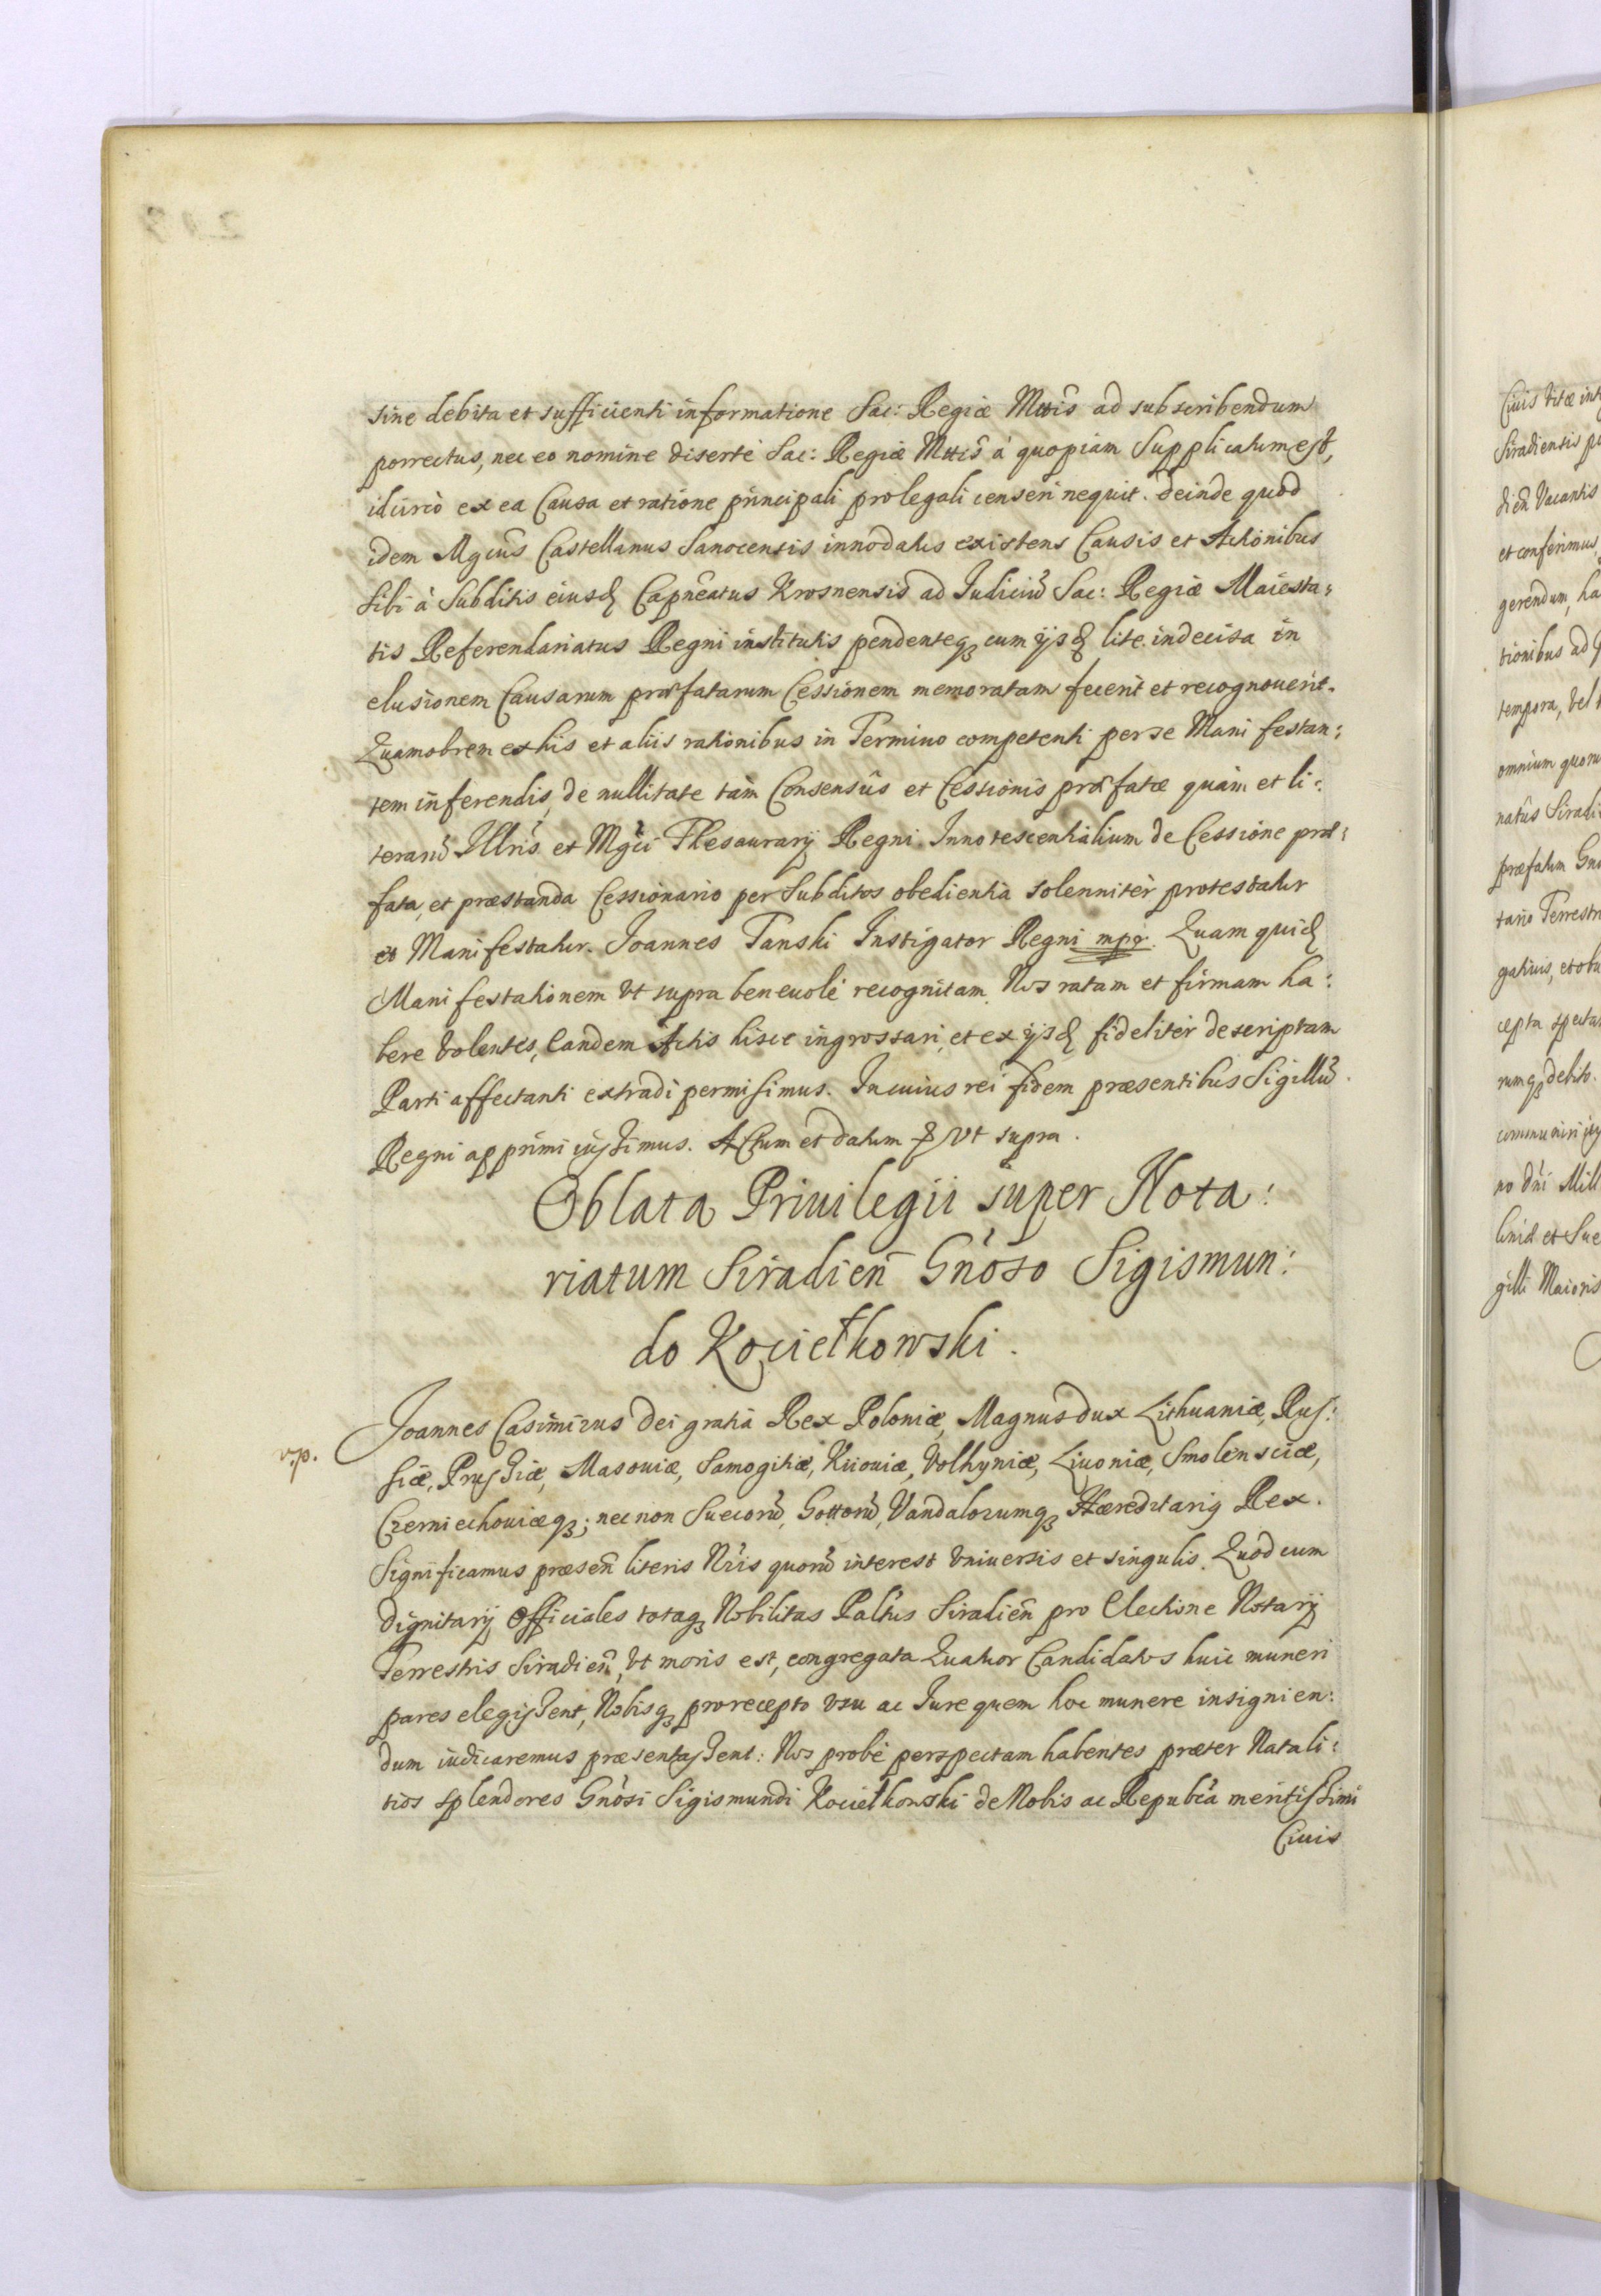 sine debita et sufficienti informatione Sac: Regiæ Mttis ad subscribendum
porrectus, nec eo nomine disertè Sac: Regiæ Mttis à quopiam Supplicatum est,
idcircò ex ea Causa et ratione principali pro legali censeri nequit. Deinde quod
idem Mgcus Castellanus Sanocensis innodatus existens Causis et Actionibus
sibi à Subditis eiusd Capneatus Krosnensis ad Judiciũ Sac: Regiæ Maiesta:
tis Referendariatus Regni institutis pendenteq cum ijsd lite indecisa in
elusionem Causarum præfatarum Cessionem memoratam fecerit et recognouerit.
Quamobrem ex his et aliis rationibus in Termino competenti per se Manifestan:
tem inferendis, de nullitate tàm Consensûs et Cessionis præfatæ quàm et li:
terarũ Illris et Mgci Thesaurarij Regni Innotescentialium de Cessione præ:
fata, et præstanda Cessionario per Subditos obedientia solenniter protestatur
et Manifestatur. Joannes Tanski Instigator Regni mpr. Quam quid
Manifestationem vt supra beneuolè recognitam Nos ratam et firmam ha:
bere volentes, Eandem Actis hisce ingrossari, et ex ijsd fideliter descriptam
Parti affectanti extradi permisimus. In cuius rei fidem præsentibus Sigillũ
Regni apprimi iussimus. Actum et datum & vt supra.
Oblata Priuilegii super Nota:
riatum Siradien Gnoso Sigismun:
do Kociełkowski.
v.p.
Joannes Casimirus Dei gratiâ Rex Poloniæ, Magnus Dux Lithuaniæ, Rus:
siæ, Prussiæ, Masouiæ, Samogitiæ, Kiiouiæ, Volhyniæ, Liuoniæ, Smolensciæ,
Czerniechouiæq; nec non Suecorũ, Gottorũ, Vandalorumq Hæreditariũ Rex.
Significamus præsen literis Nris quorũ interest vniuersis et singulis. Quod cum
Dignitarij Officiales totaq Nobilitas Paltus Siradien pro Electione Notarij
Terrestris Siradien, vt moris est, congregata Quatuor Candidatos huic muneri
pares elegissent, Nobisq pro recepto vsu ac Jure quem hoc munere insignien:
dum iudicaremus præsentassent: Nos probè perspectam habentes præter Natali:
tios splendores Gnosi Sigismundi Kociełkowski de Nobis ac Republca meritissimi
Ciuis